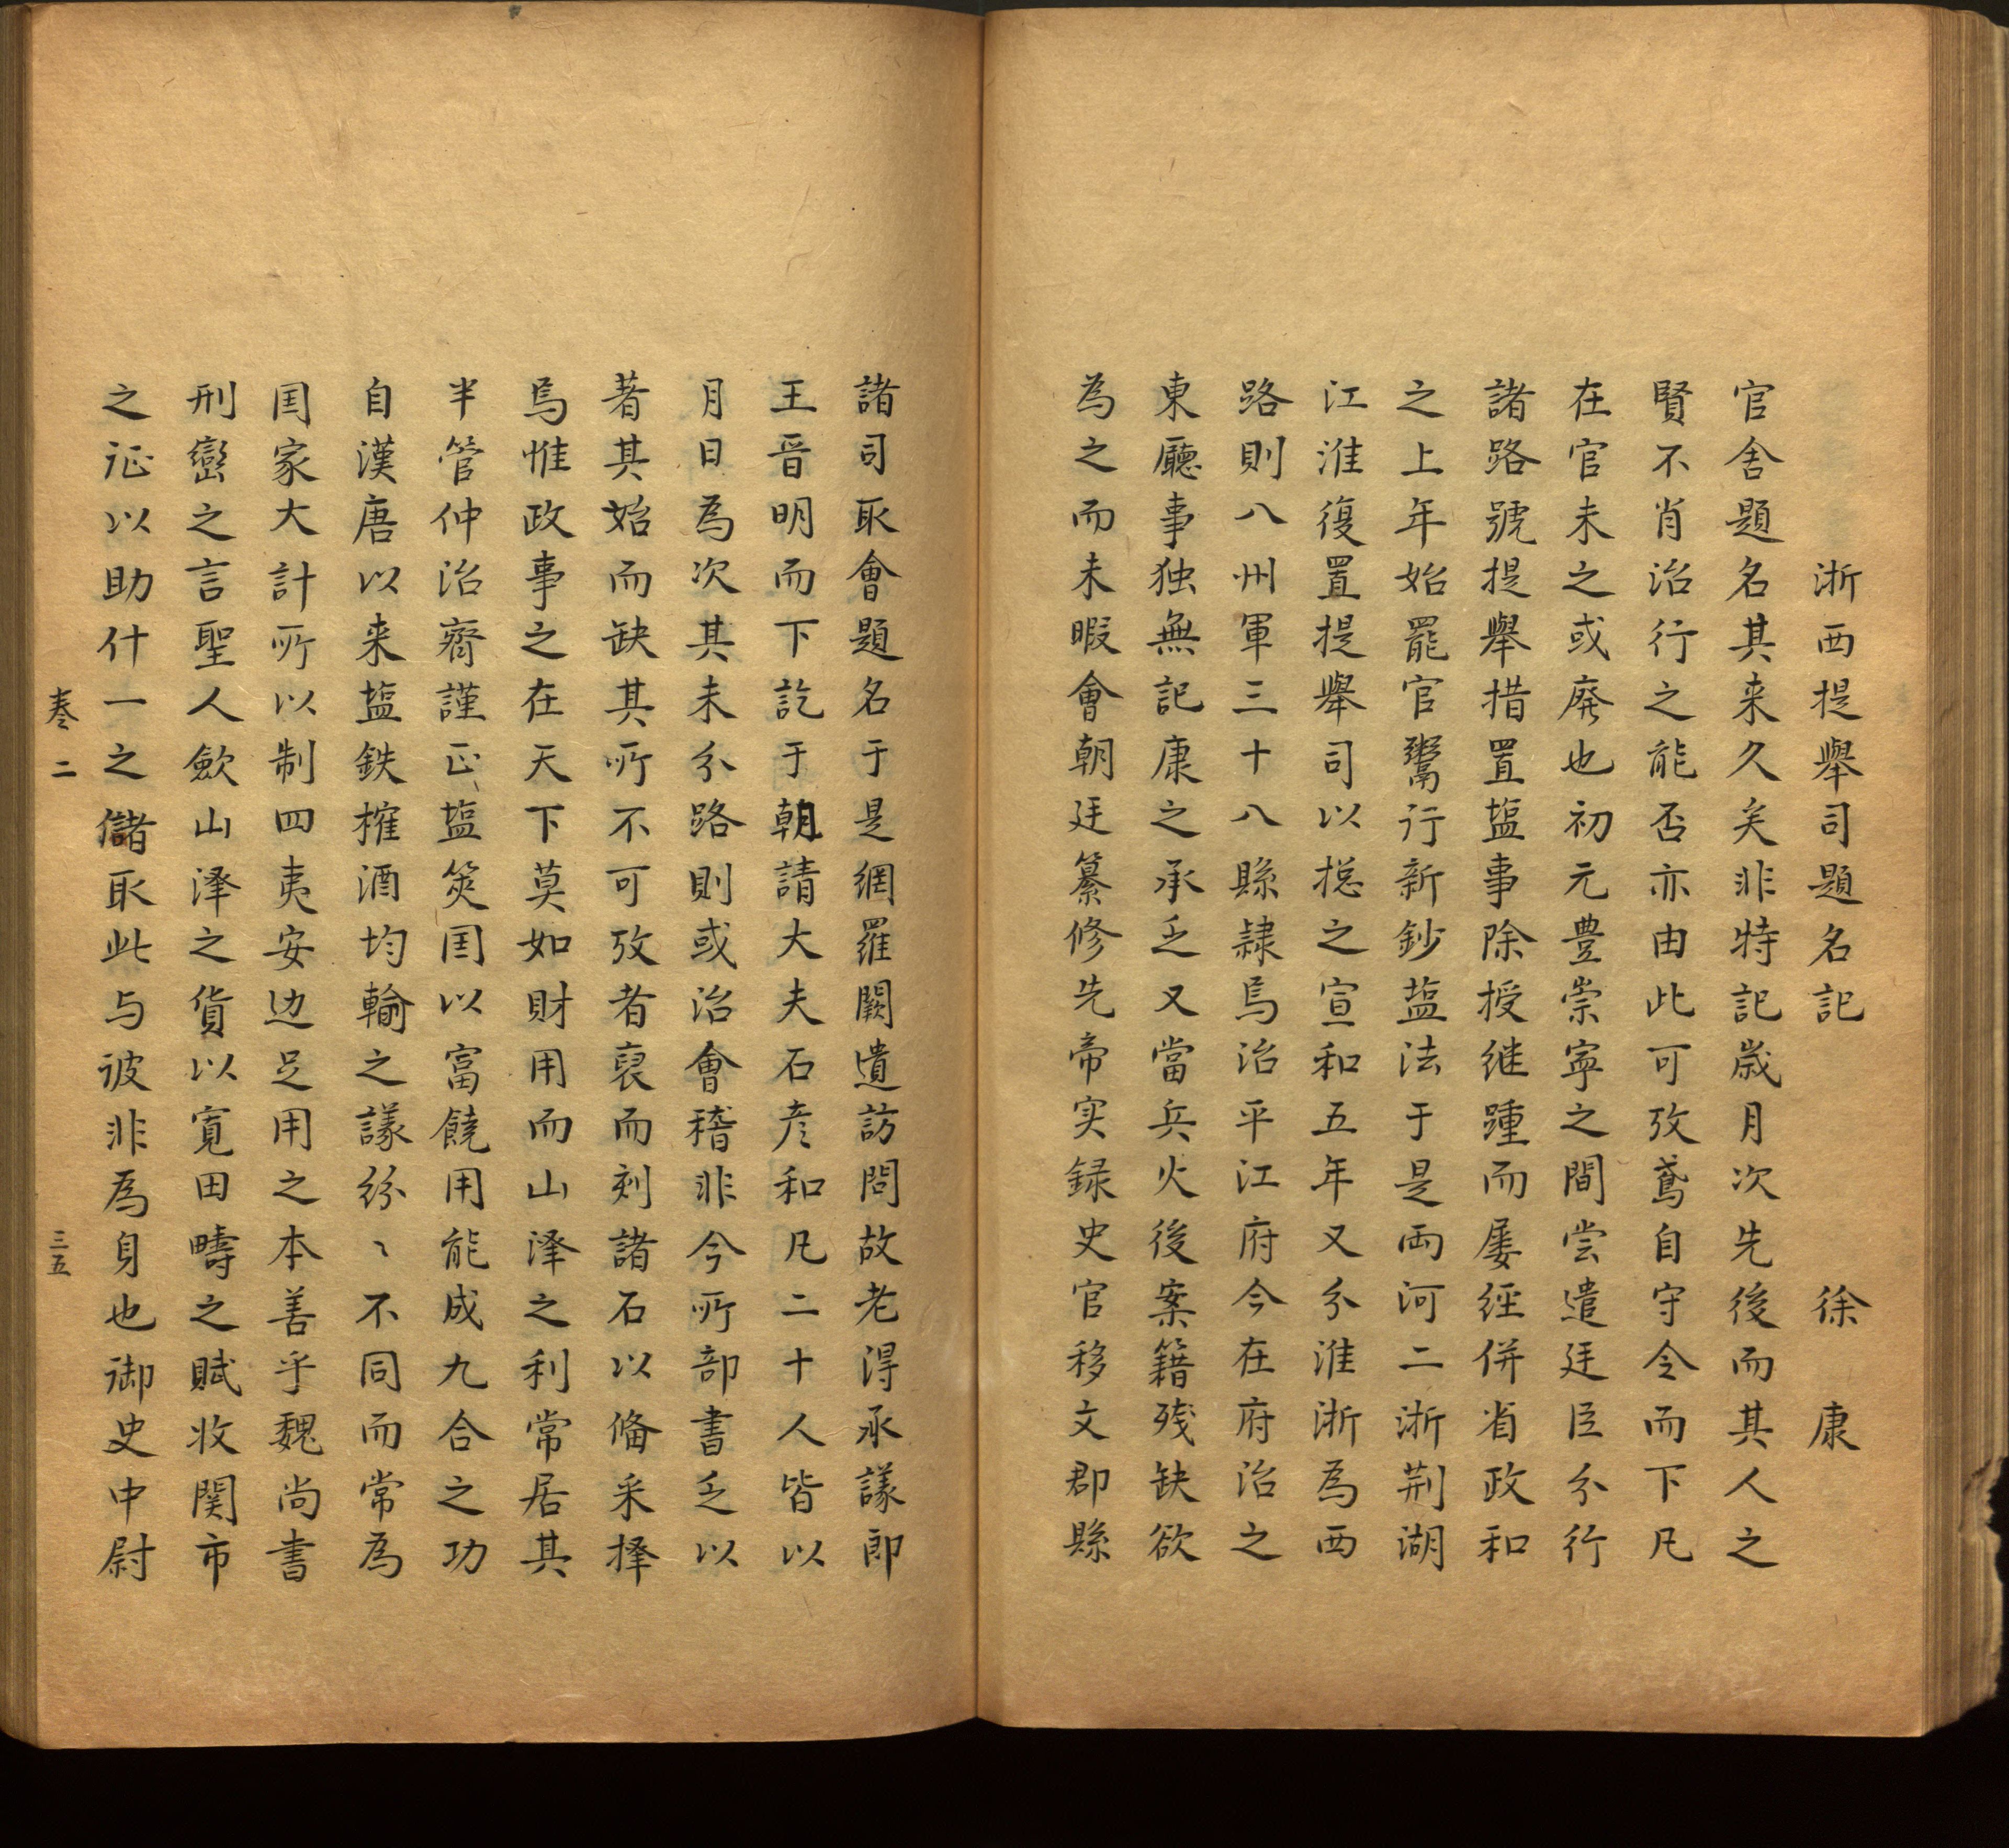 浙西提舉司題名記　徐康
官舍題名其来久矣非特記歳月次先後而其人之
賢不肖治行之能否亦由此可攷鳶自守令而下凡
在官未之或廃也初元豊崇寧之間嘗遣廷臣分行
諸路號提舉措置塩事除授継踵而屡経併省政和
之上年始罷官鬻行新鈔塩法于是両河二浙荆湖
江淮復置提舉司以捴之宣和五年又分淮浙為西
路則八州軍三十八縣隷焉治平江府今在府治之
東廳事独無記康之承乏又當兵火後案籍残缺欲
為之而未暇會朝廷纂修先帝実録史官移文郡縣
諸司取會題名于是網羅闕遺訪問故老淂承議郎
王晋明而下訖于朝請大夫石彦和凡二十人皆以
月日為次其未分路則或治會稽非今所部書乏以
著其始而缺其所不可攷者裒而刻諸石以俻采择
焉惟政事之在天下莫如財用而山泽之利常居其
半管仲治齊謹正塩筴囯以富饒用能成九合之功
自漢唐以来塩鉄榷酒均輸之議紛〻不同而常為
囯家大計所以制四夷安边足用之本善乎魏尚書
刑巒之言聖人歛山泽之貨以寛田疇之賦收関市
之征以助什一之儲取此与彼非為身也御史中尉
卷二　三五